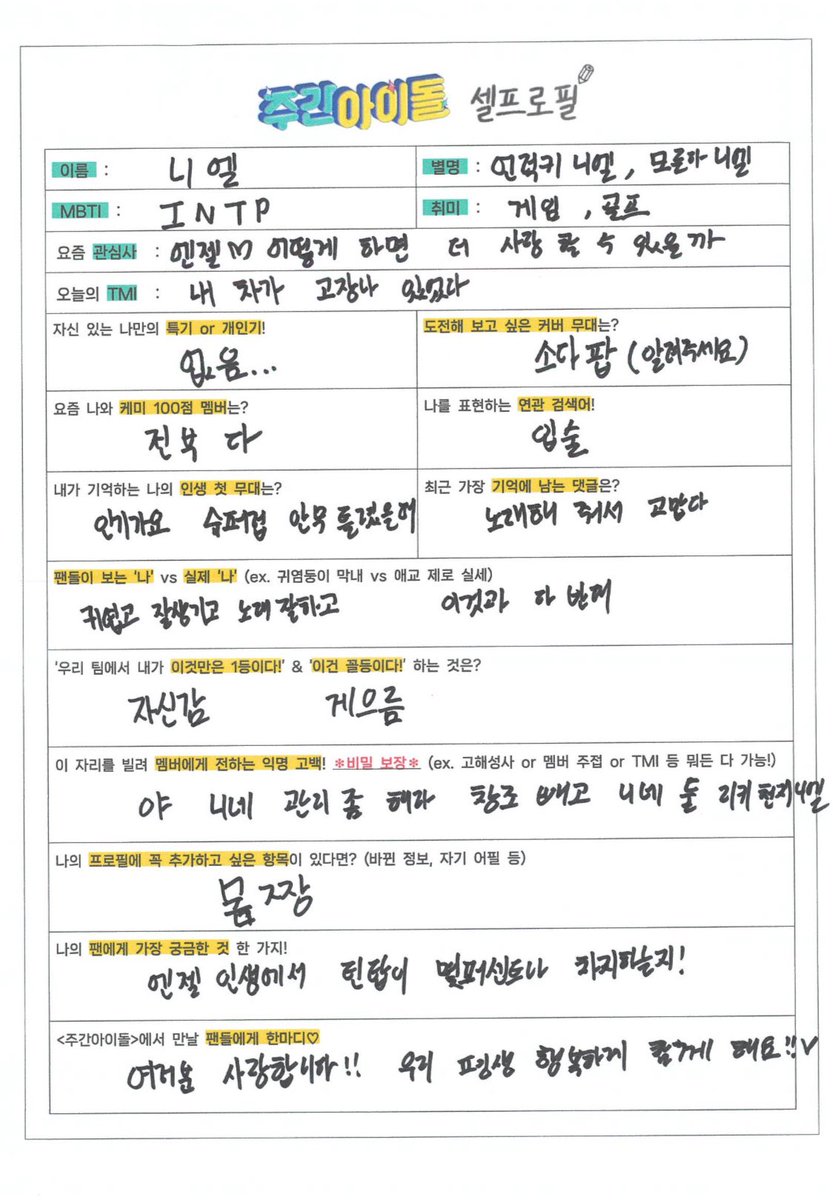 주간아이돌 셀프로필
이름 : 니엘
별명 : 언럭키 니엘, 모른다 니엘
MBTI : INTP
취미 : 게임, 골프
요즘 관심사 : 엔젤 어떻게 하면 더 사랑 할 수 있을까
오늘의 TMI : 내 차가 고장나 있었다
자신 있는 나만의 특기 or 개인기!
없음...
도전해 보고 싶은 커버 무대는?
소다팝 (알려주세요)
요즘 나와 케미 100점 멤버는?
전부 다
나를 표현하는 연관 검색어!
입술
내가 기억하는 나의 인생 첫 무대는?
인기가요 슈퍼럽 안무 틀렸을때
최근 가장 기억에 남는 댓글은?
노래해 줘서 고맙다
팬들이 보는 '나' vs 실제 '나' (ex. 귀염둥이 막내 vs 애교 제로 실세)
귀엽고 잘생기고 노래 잘하고 이것과 다 반대
'우리 팀에서 내가 이것만은 1등이다!' & '이건 꼴등이다!' 하는 것은?
자신감 게으름
이 자리를 빌려 멤버에게 전하는 익명 고백! *비밀 보장* (ex. 고해성사 or 멤버 주접 or TMI 등 뭐든 다 가능!)
야 니네 관리 좀 해라 창조 빼고 니네 둘 리키 천지 니엘
나의 프로필에 꼭 추가하고 싶은 항목이 있다면? (바뀐 정보, 자기 어필 등)
몸짱
나의 팬에게 가장 궁금한 것 한 가지!
엔젤 인생에서 틴탑이 몇퍼센트나 차지하는지!
<주간아이돌>에서 만날 팬들에게 한마디♡
여러분 사랑합니다!! 우리 평생 행복하게 함께 해요!!♡